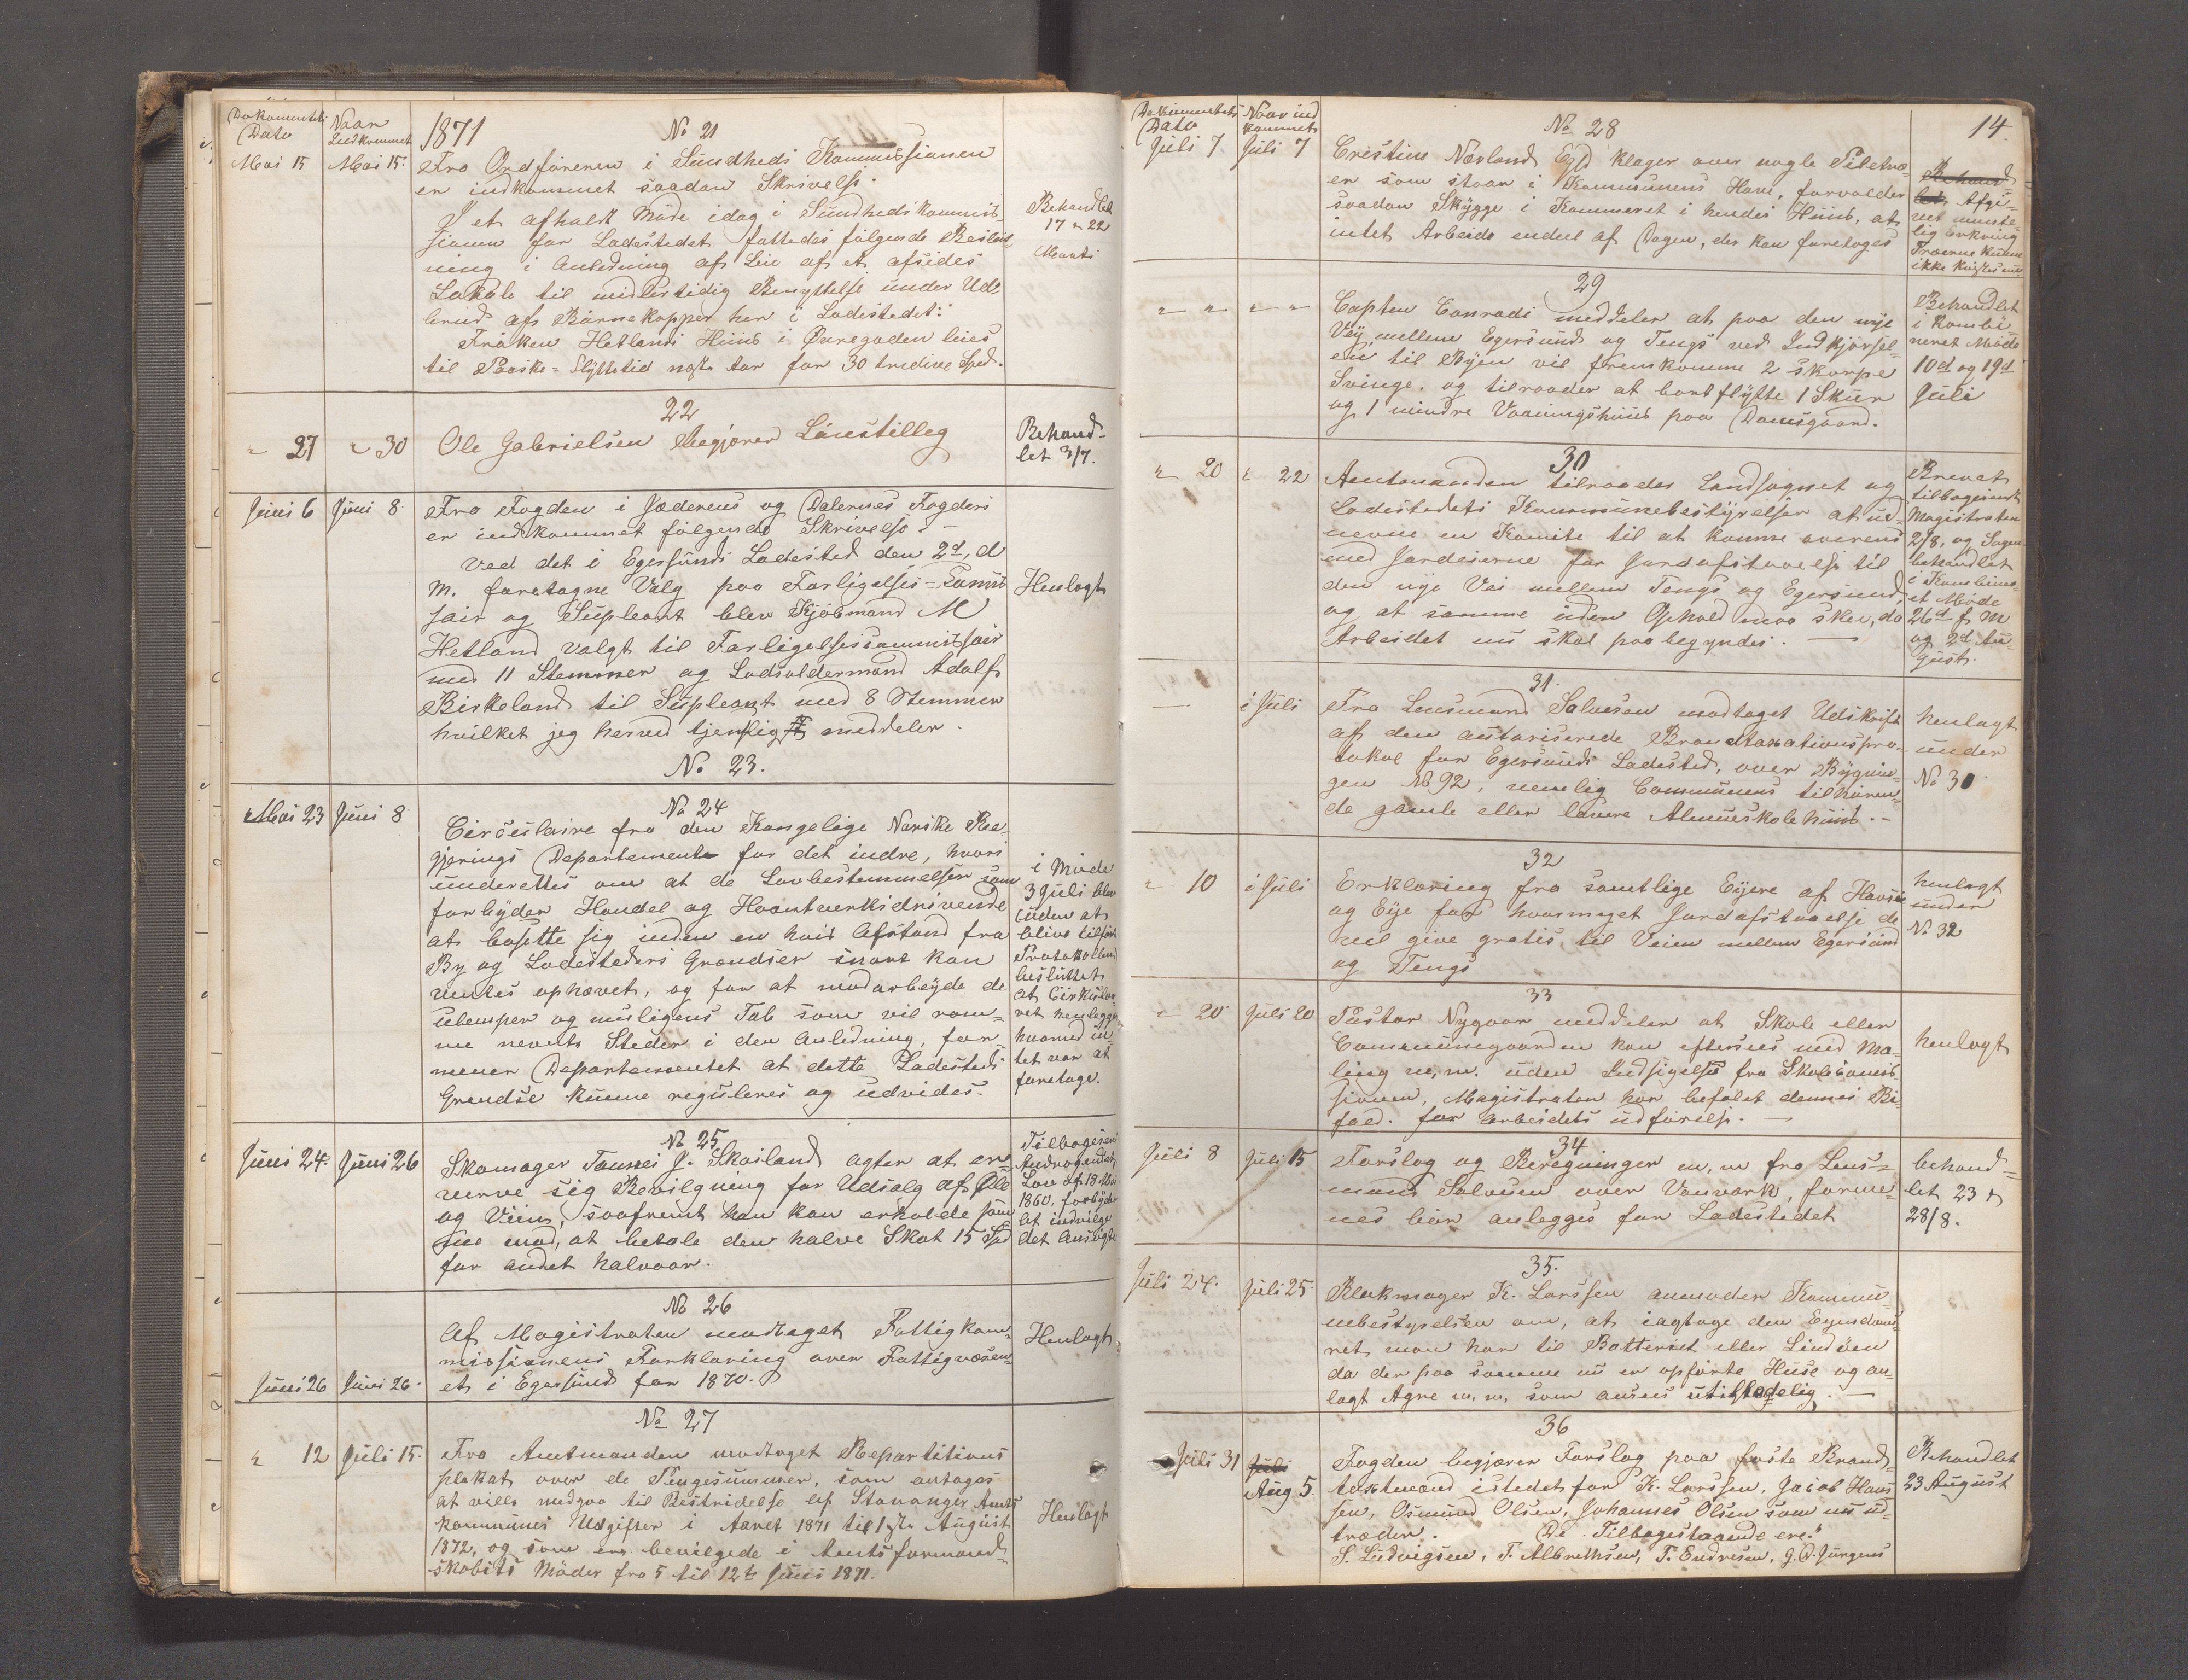 Dokumentets Dato
Naar Indkommet
1871
No 21
Mai 15
Mai 15.
Fra Ordføreren i Sundheds Kommissionen
er indkommet saadan Skrivelse.
I et afholdt Møde idag i Sundhedskommis-
sionen for Ladestedet fattedes følgende Beslut-
ning i Anledning af Leie af et afsides
Lokale til midlertidig Benyttelse under Ud-
brud af Børnekopper her i Ladestedet:
Frøken Hetlands Huus i Øvregaden leies
til Paaske-Flyttetid næste Aar for 30 tredive Spd.
Behandlet
17 & 22
22
" 27
" 30
Ole Gabrielsen Begjærer Lønstillæg
Behand-
let 3/7.
Juni 6
Juni 8
Fra Fogden i Jæderens og Dalernes Fogderi
er indkommet følgende Skrivelse.—
Ved det i Egersunds Ladested den 2d, d
M. foretagne Valg paa Forligelses-Commis
sair og Supleant blev Kjøbmand M
Hetland valgt til Forligelsescommissair
med 11 Stemmer og Lodsoldermand Adolf
Birkeland til Supleant med 8 Stemmer
hvilket jeg herved tjenstligst meddeler.
Henlagt
No 23.
No 24
Mai 23
Juni 8
Circulaire fra den Kongelige Norske Re-
gjerings Departement for det indre, hvori
underettes om at de Lovbestemmelser som
forbyder Handel og Haantverksdrivende
at bosette sig inden en hvis Afstand fra
By og Ladesteders Grændser snart kan
ventes ophævet, og for at modarbeyde de
ulemper og muligens Tab som vil ram-
me nevnte Steder i den Anledning, for-
mener Departementet at dette Ladesteds
Grendse kunne reguleres og udvides.
i Møde
3 Juli blev
uden at
blive tilført
Protokollen
besluttet
at Cirkulæ-
ret henlegges
hvormed in-
tet var at
foretage.
No 25
Juni 24.
Juni 26
Skomager Tønnes J. Skailand agter at er-
verve sig Bevilgning for Udsalg af Øl
og Viin, saafremt han kan erholde sam-
me mod, at betale den halve Skat 15 Spd
for andet halvaar.
Tilbagesen
Andragendet
Lov af 18 Mai
1860, forbyder
at indvilge
det Ansøgte
No 26
Juni 26
Juni 26.
Af Magistraten modtaget Fattigkom-
missionens Forklaring over Fattigvæsen-
et i Egersund for 1870.
Henlagt
No 27
" 12
Juli 15.
Fra Amtmanden modtaget Repartitions
plakat over de Pengesummer, som antages
at ville medgaa til Bestridelse af Stavanger Amts
kommunes Udgifter i Aaret 1871 til 1ste August
1872, og som ere bevilgede i Amtsformand-
skabets Møder fra 5 til 12te Juni 1871.
Henlagt
Dokumentets Dato
Naar ind
kommet
No 28
14.
Juli 7
Juli 7
Cristine Nærland Egd. klager over nogle Piletræ-
er som staar i Kommunens Have, forvolder
saadan Skygge i Kammeret i hendes Huus, at
intet Arbeide endeel af Dagen, der kan foretages
Behand
let, Afgi-
vet munt-
lig
Træerne kunne
ikke
29
" " " "
Capten Conradi meddeler at paa den nye
Vey mellem Egersund og Tengs ved Indkjørsel-
en til Byen vil fremkomme 2 skarpe
Svinge, og tilraader at bortflytte 1 Skur
og 1 mindre Vaaningshuus paa Damsgaard.
Behandlet
i Kombi-
neret Møde
10d og 19d
Juli
30
" 20
" 22
Amtmanden tilraader Landsognet og
Ladestedets Kommunebestyrelser at ud-
nevne en Komite til at komme overens
med Jordeierne for Jordafstaaelse til
den nye Vei mellem Tengs og Egersund,
og at samme uden Ophold maa skee, da
Arbeidet nu skal paabegyndes.—
Brevet
tilbagesendt
Magistraten
2/8, og Sagen
behandlet
i Kombine-
et Møde
26d f M
og 2d Au-
gust.
31.
—
i Juli
Fra Lensmand Salvesen modtaget Udskrift
af den autoriserede Brandtaxationspro-
tokol for Egersunds Ladested, over Bygnin-
gen No 92, nemlig Communens tilhøren-
de gamle eller lavere Almueskolehuus.—
henlagt
under
No 30
32
" 10
i Juli
Erklæring fra samtlige Eyere af Havsø
og Eye for hvormeget Jordafstaaelse de
vil give gratis til Veien mellem Egersund
og Tengs
henlagt
under
No 32
33
" 20
Juli 20
Pastor Nygaar meddeler at Skole eller
Communegaarden kan eftersees med Ma-
ling m,m. uden Indsigelse fra Skolecomis-
sionen, Magistraten har befalet dennes Bi-
fald. for arbeidets udførelse.—
henlagt
34
Juli 8
Juli 15
Forslag og Beregninger m,m fra Lens-
mand Salvesen over Vanværk, forme-
nes bør anlegges for Ladestedet
behand-
let 23 &
28/8.
35.
Juli 24.
Juli 25
Blokmager K. Larssen anmoder Kommu-
nebestyrelsen om, at iagtage den Eyendoms-
ret man har til Batteriet eller Lindøen
da der paa samme nu er opførte Huse og an-
lagt Agre m,m, som ansees utilstedelig.—
36
Juli 31
Juli
Aug 5.
Fogden begjærer Forslag paa faste Brand-
taxtmænd istedet for K. Larssen, Jacob Han-
sen, Osmund Olsen, Johannes Olsen som nu ud-
træder. De Tilbagestaaende ere:
S. Ludvigsen, T. Albrethsen, T. Endresen, G. D. Jürgens
Behandlet
23 August